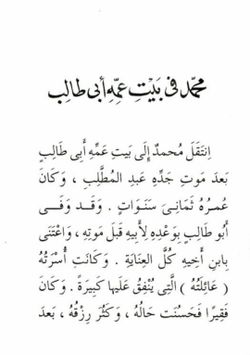 محمد في بَيْتِ عمِّهِ أبي طالِب
اِنتَقَلَ مُحمدٌ إِلَى بَيتِ عَمِّهِ أَبِي طَالِبٍ
بَعدَ مَوتِ جَدِّهِ عَبدِ المُطَّلِبِ ، وَكَانَ
عُمـرُهُ ثَمـانِيَ سَنَـوَاتٍ . وَقَـد وَفَـى
أَبُو طَالِبٍ بِوَعْدِهِ لِأَبِيهِ قَبلَ مَوتِهِ ، وَاعْتَنَى
بِابنِ أَخِيهِ كُلَّ العِنَايَةِ . وَكَانَت أُسْرَتُهُ
( عَائِلَتُهُ ) الَّتِي يُنْفِقُ عَلَيهَا كَبِيرَةً . وَكَانَ
فَقِيرًا فَحَسُنَت حَالُهُ ، وَكَثُرَ رِزْقُهُ ، بَعدَ